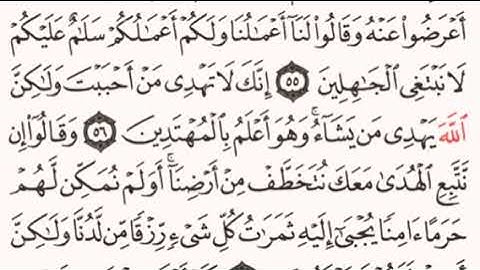 أَعْرَضُوا۟ عَنْهُ وَقَالُوا۟ لَنَآ أَعْمَٰلُنَا وَلَكُمْ أَعْمَٰلُكُمْ سَلَٰمٌ عَلَيْكُمْ
لَا نَبْتَغِى ٱلْجَٰهِلِينَ ٥٥ إِنَّكَ لَا تَهْدِى مَنْ أَحْبَبْتَ وَلَٰكِنَّ
ٱللَّهَ يَهْدِى مَن يَشَآءُ ۚ وَهُوَ أَعْلَمُ بِٱلْمُهْتَدِينَ ٥٦ وَقَالُوٓا۟ إِن
نَّتَّبِعِ ٱلْهُدَىٰ مَعَكَ نُتَخَطَّفْ مِنْ أَرْضِنَآ ۚ أَوَلَمْ نُمَكِّن لَّهُمْ
حَرَمًا ءَامِنًا يُجْبَىٰٓ إِلَيْهِ ثَمَرَٰتُ كُلِّ شَىْءٍ رِّزْقًا مِّن لَّدُنَّا وَلَٰكِنَّ